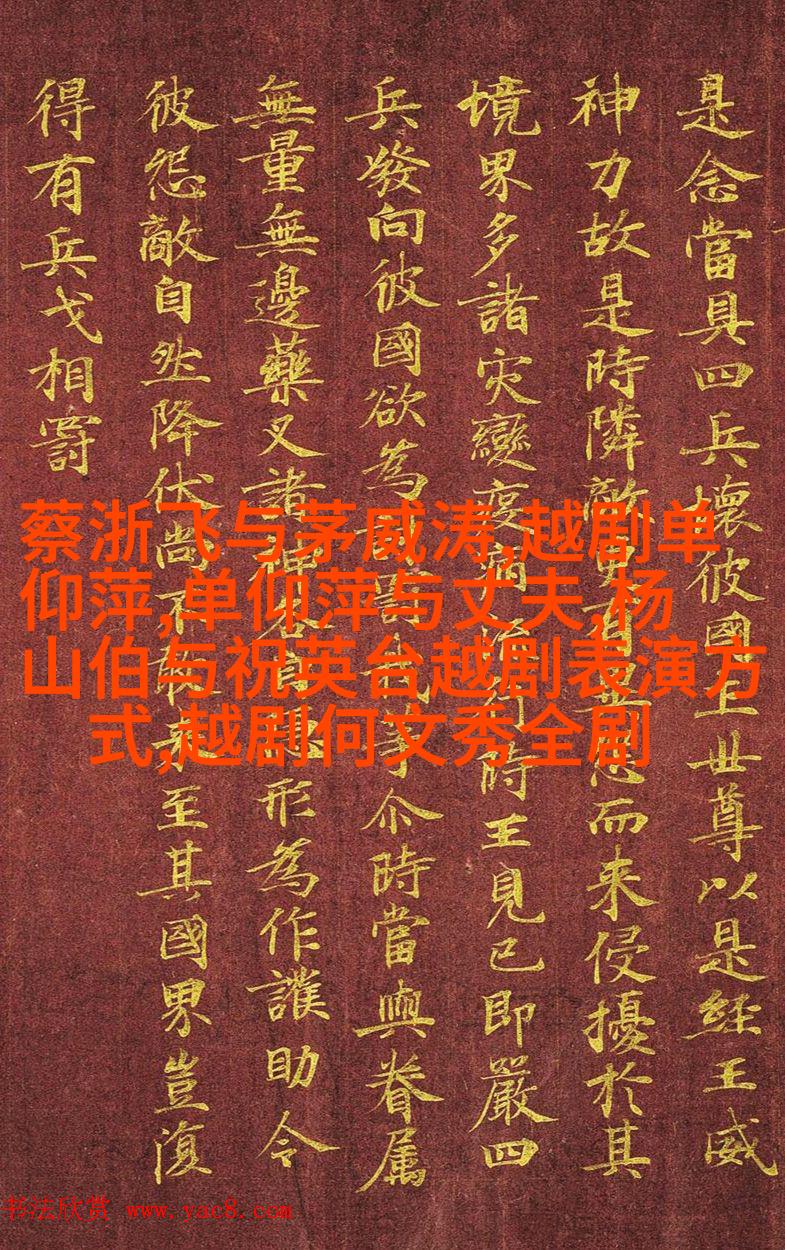 是念當具四兵壞彼國土世尊以是經王威
神力故是時隣敵更有異怨而来侵擾於其
境界多諸灾變疫病流行時王見已即嚴四
兵發向彼國欲為討罰我等尒時當與眷属
無量無邊藥叉諸神各自隱形為作護助令
彼怨敵自然降伏尚不敢来至其國界豈復
得有兵戈相罸
蔡浙飞与茅威涛,越剧单
仰萍,单仰萍与丈夫,杨
山伯与祝英台越剧表演方
式,越剧何文秀全剧
书法欣赏 www.yac8.com